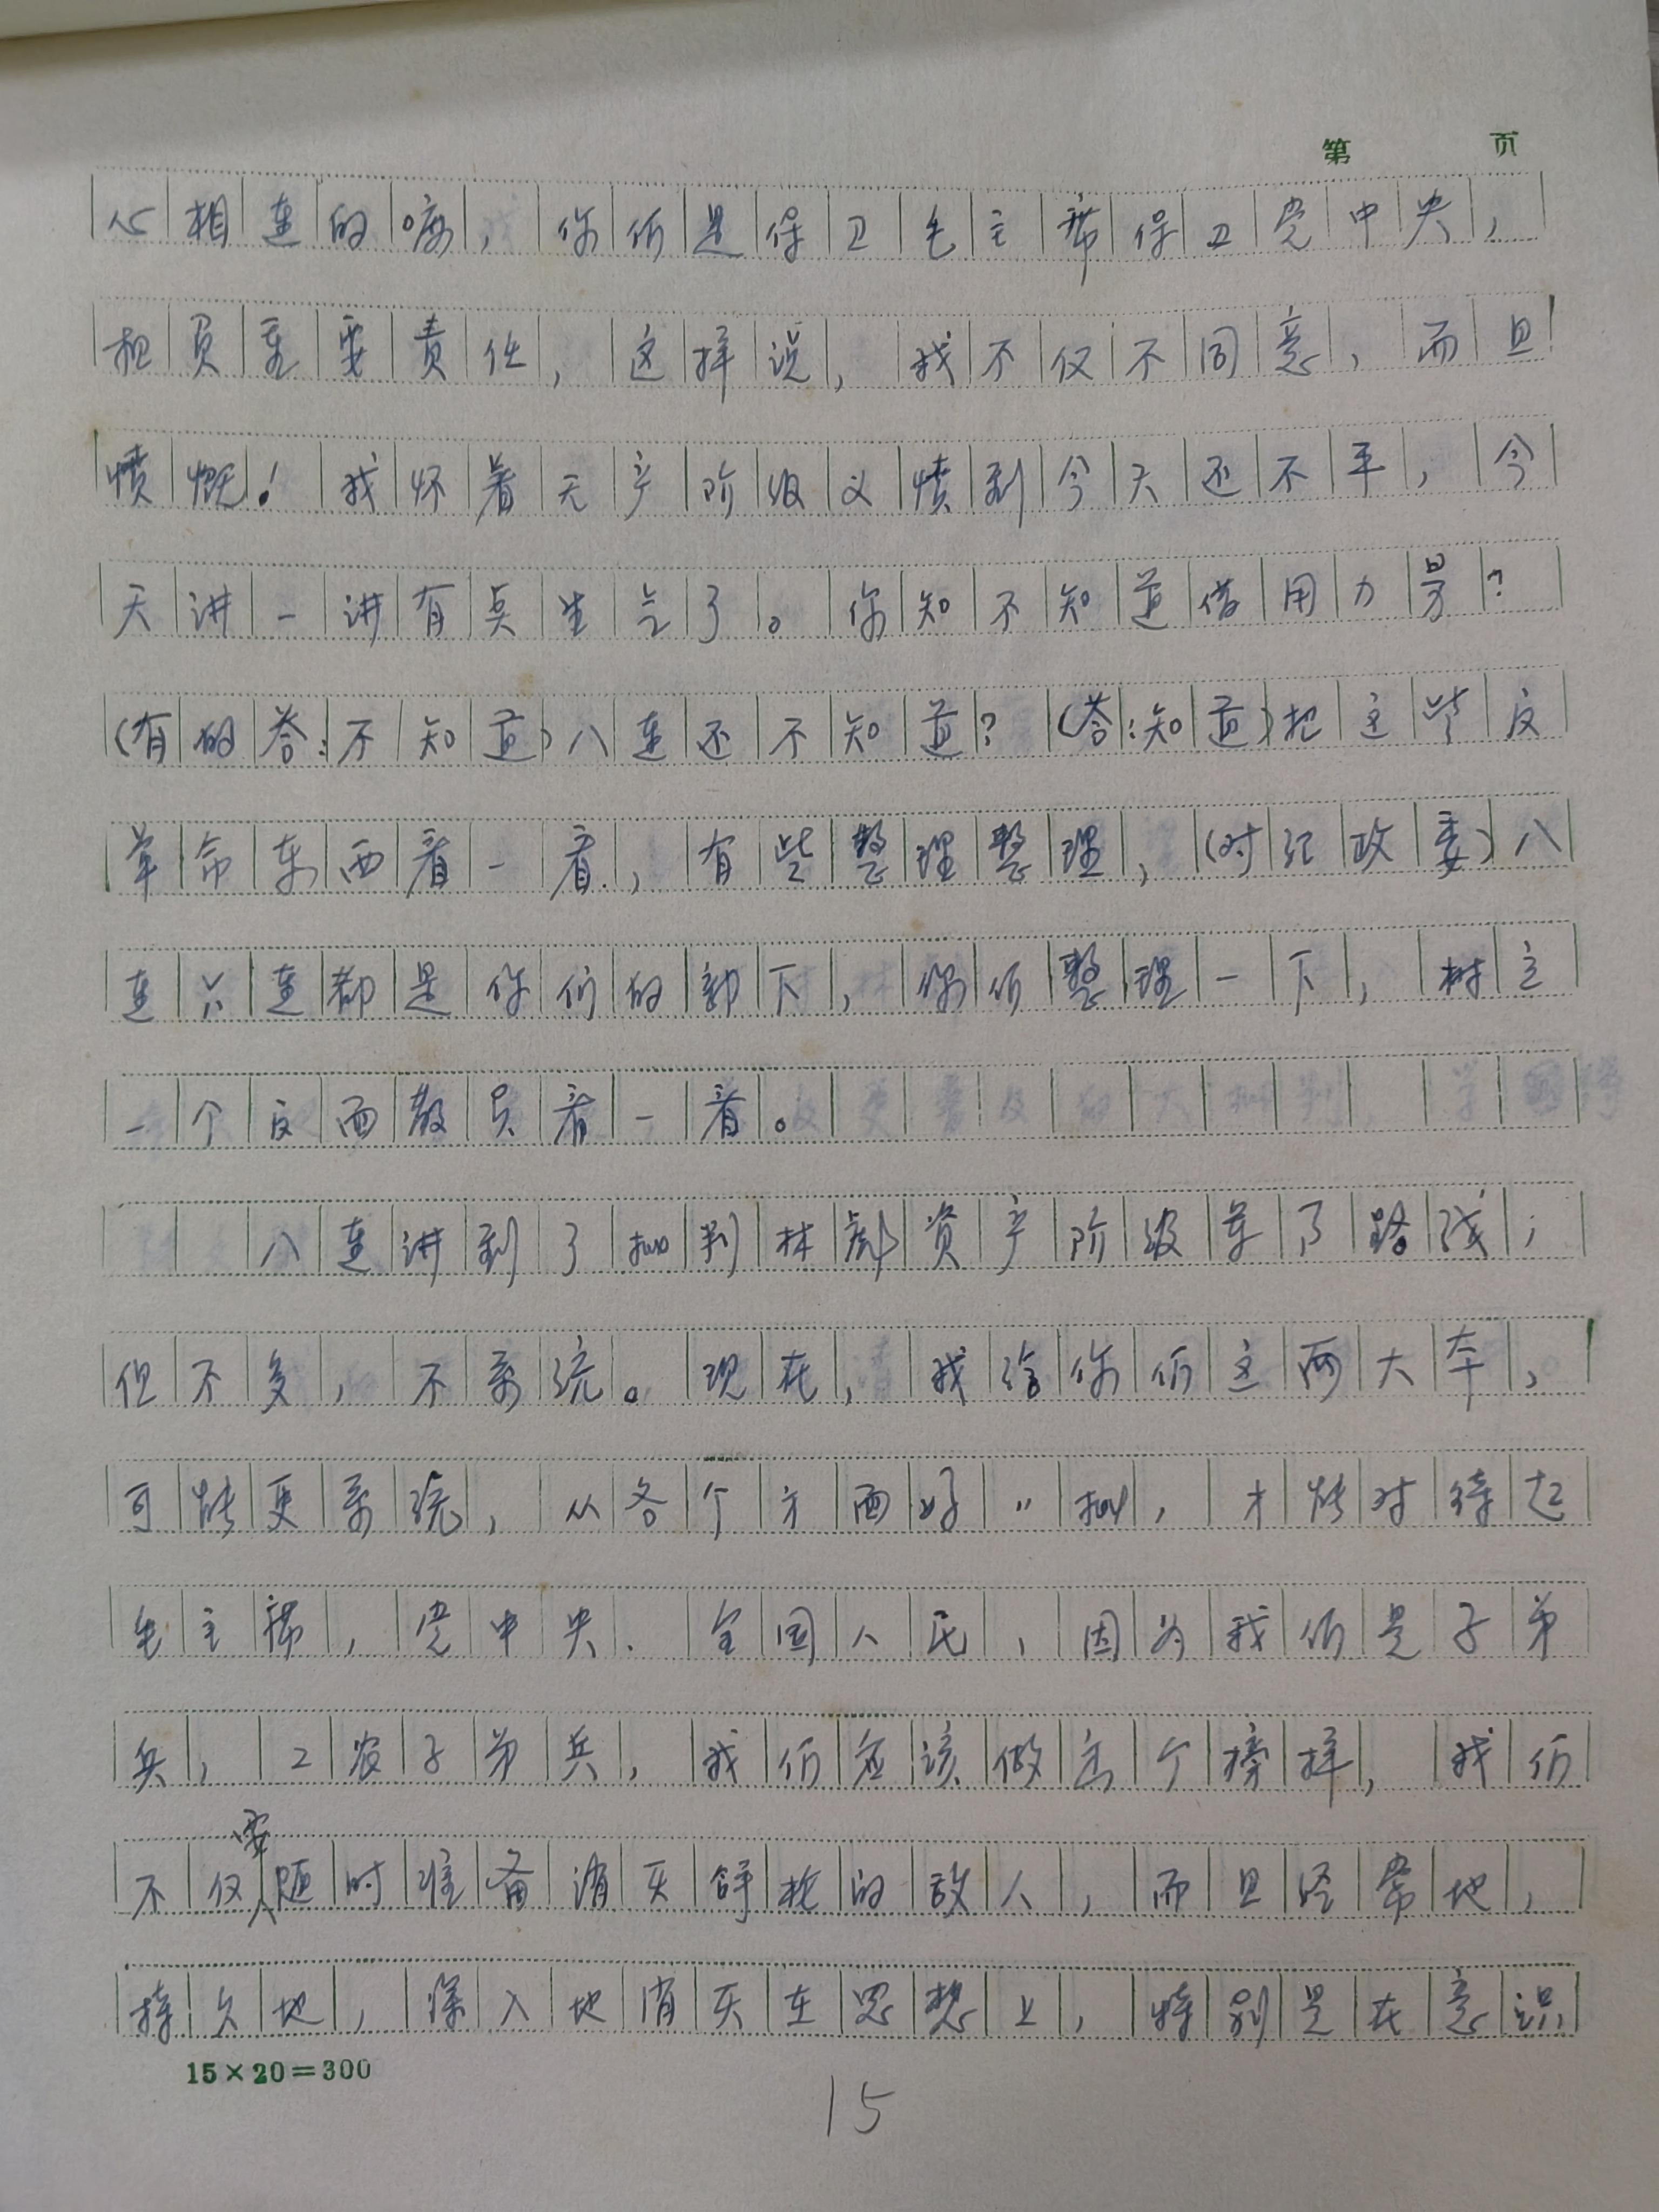 第 页
心相连的嘛，你们是保卫毛主席保卫党中央，
担负重要责任，这样说，我不仅不同意，而且
愤慨！我怀着无产阶级义愤到今天还不平，今
天讲一讲有点生气了。你知不知道借用力量？
（有的答：不知道）八连还不知道？（答：知道）把这些反
革命东西看一看，有些整理整理，（对纪政委）八
连六连都是你们的部下，你们整理一下，树立
一个反面教员看一看。
八连讲到了批判林彪资产阶级军事路线；
但不多，不系统。现在，我给你们这两大本，
可能更系统，从各个方面好〃批，才能对得起
毛主席，党中央、全国人民，因为我们是子弟
兵，工农子弟兵，我们应该做这个榜样，我们
不仅要随时准备消灭拿枪的敌人，而且经常地，
持久地，深入地消灭在思想上，特别是在意识
15×20=300
15